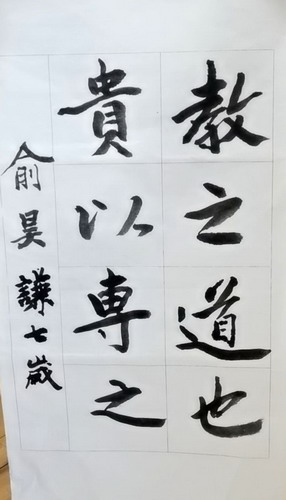 教之道也
貴以専之
俞昊謙七歲